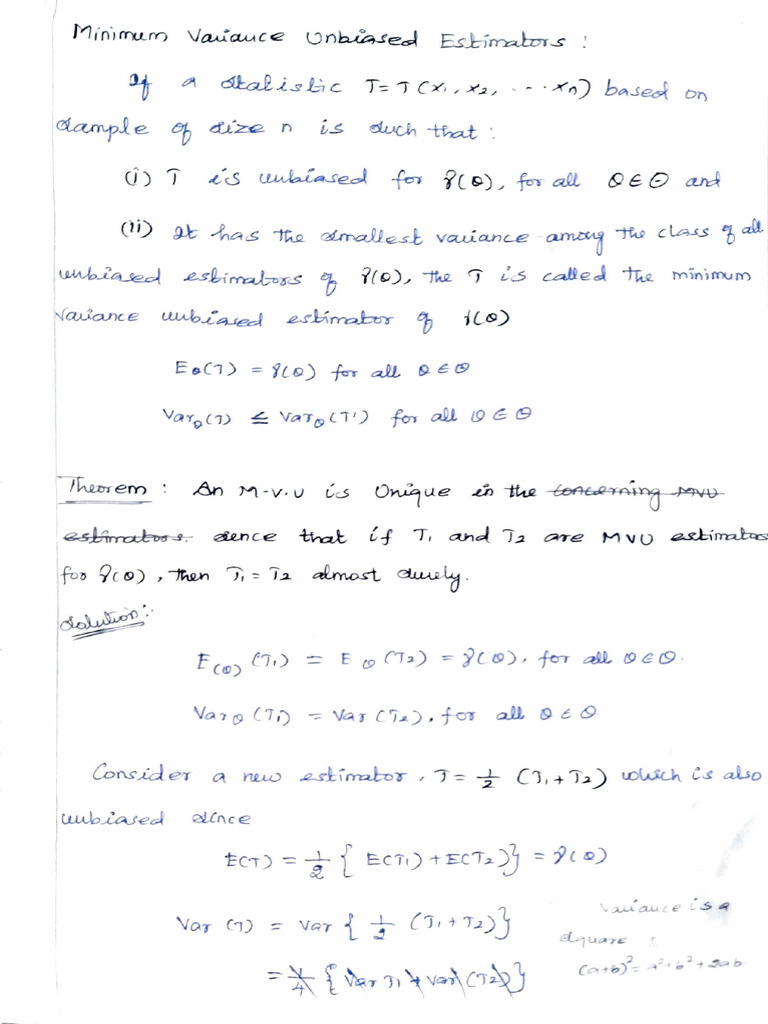 Minimum Variance Unbiased Estimators :
If a statistic T = T (x₁, x₂, ... xn) based on
sample of size n is such that :
(i) T is unbiased for γ(θ), for all θ ∈ Θ and
(ii) It has the smallest variance among the class of all
unbiased estimators of γ(θ), the T is called the minimum
variance unbiased estimator of γ(θ)
Eθ(T) = γ(θ) for all θ ∈ Θ
Varθ(T) ≤ Varθ(T') for all θ ∈ Θ
Theorem : An M-V.U is Unique in the concerning MVU
estimators. sence that if T₁ and T₂ are MVU estimators
for γ(θ), then T₁ = T₂ almost surely.
Solution :
E(θ) (T₁) = Eθ (T₂) = γ(θ), for all θ ∈ Θ.
Varθ (T₁) = Var (T₂), for all θ ∈ Θ
Consider a new estimator, T = 1/2 (T₁ + T₂) which is also
unbiased since
E(T) = 1/2 { E(T₁) + E(T₂)} = γ(θ)
Var (T) = Var { 1/2 (T₁ + T₂)}
= 1/4 { Var T₁ + Var (T₂)}
Variance is a
square :
(a+b)² = a² + b² + 2ab